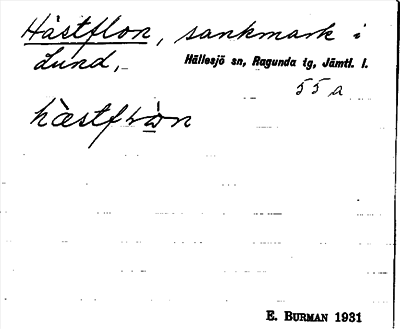 Hästflon, sankmark i
Lund,
Hällesjö sn, Ragunda tg, Jämtl. l.
55 a
E. BURMAN 1931